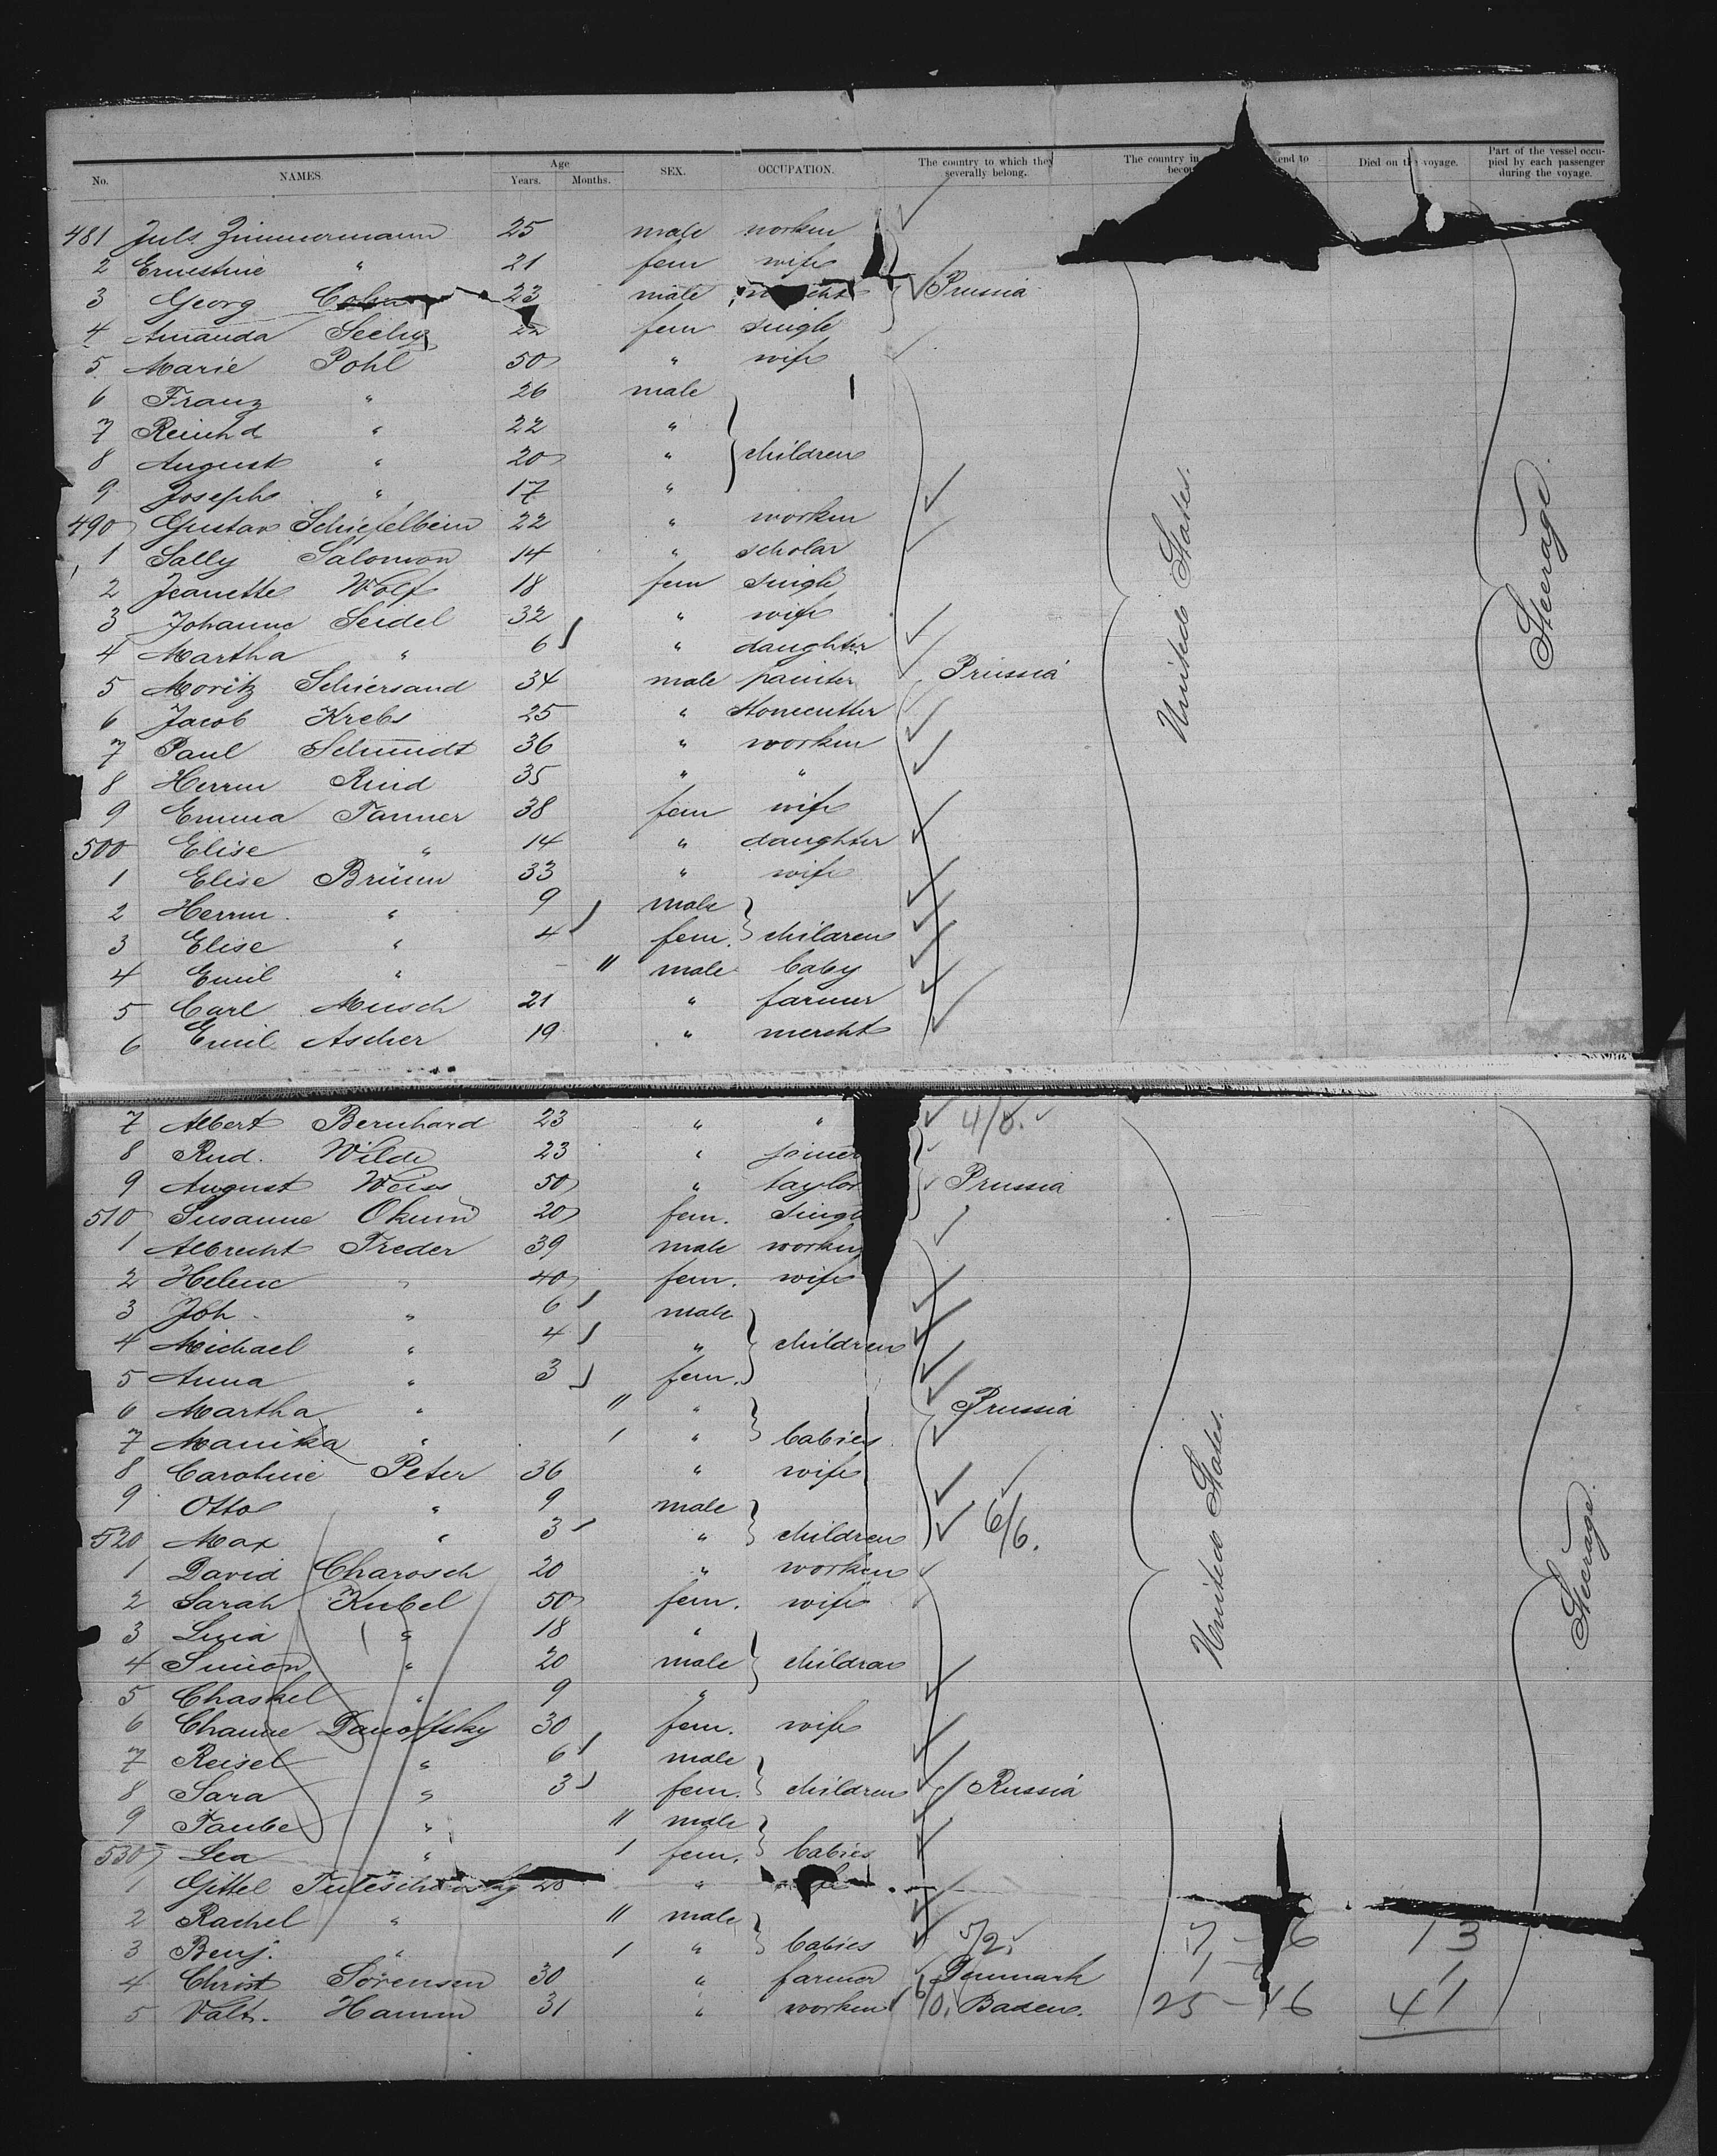 No. NAMES. Age Years. Months. SEX. OCCUPATION. The country to which they severally belong. The country in end to becom Died on the voyage. Part of the vessel occupied by each passenger during the voyage.
481 Juls Zimmermann 25 male worker
2 Ernestine " 21 fem wife
3 Georg 23 male Prussia
4 Amanda Seelig 22 fem single
5 Marie Pohl 50 " wife
6 Franz " 26 male
7 Reinhd " 22 "
8 August " 20 " children
9 Joseph " 17 "
490 Gustav Schiefelbein 22 " worker
1 Sally Salomon 14 " scholar
2 Jeanette Wolf 18 fem single
3 Johanne Seidel 32 " wife
4 Martha " 6 " daughter
5 Moritz Schiersand 34 male painter Prussia United States. Steerage.
6 Jacob Krebs 25 " stonecutter
7 Paul Schmidt 36 " worker
8 Herrm Rind 35 " "
9 Emma Tanner 38 fem wife
500 Elise " 14 " daughter
1 Elise Brünn 33 " wife
2 Herrm. " 9 male
3 Elise " 4 fem. children
4 Emil " 11 male baby
5 Carl Musch 21 " farmer
6 Emil Ascher 19 " mercht
7 Albert Bernhard 23 " " 4/6.
8 Rud. Wilde 23 " joiner
9 August Weiss 50 " taylor Prussia
510 Susanne Okunn 20 fem. single
1 Albrecht Treder 39 male worker
2 Helene " 40 fem. wife
3 Joh. " 6 male
4 Michael " 4 " children
5 Anna " 3 fem.
6 Martha " 11 " Prussia
7 Manika " 1 " babies
8 Caroline Peter 36 " wife
9 Otto " 9 male
520 Max " 3 " children 6/6.
1 David Charosch 20 " worker
2 Sarah Kubel 50 fem. wife United States. Steerage.
3 Livia " 18 "
4 Simon " 20 male children
5 Chaskel " 9 "
6 Channe Danoffsky 30 fem. wife
7 Reisel " 6 male
8 Sara " 3 fem. children Russia
9 Taube " 11 male
530 Lea " 1 fem. babies
1 Gittel 28 "
2 Rachel " 11 male
3 Benj. " 1 " babies 5/2. 7 - 6 13
4 Christ Sörensen 30 " farmer Denmark 1
5 Valt. Hamm 31 " worker 6/0. Baden. 25 - 16 41